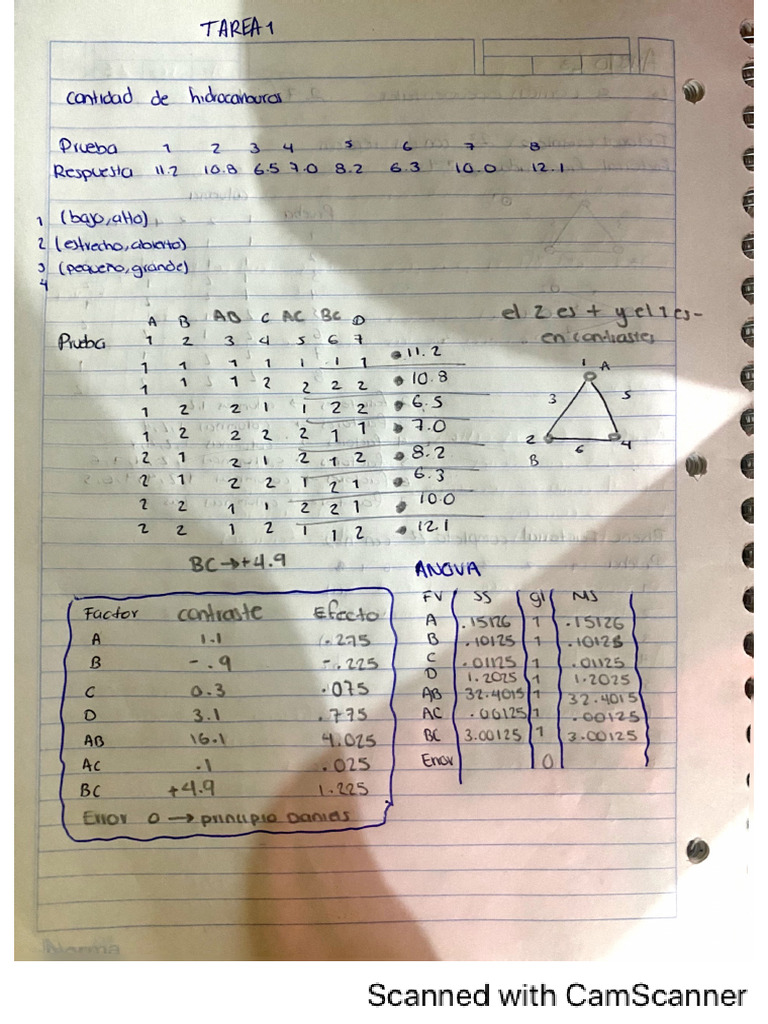 TAREA 1
cantidad de hidrocarburos
Prueba 1 2 3 4 5 6 7 8
Respuesta 11.2 10.8 6.5 7.0 8.2 6.3 10.0 12.1
1 (bajo, alto)
2 (estrecho, abierto)
3 (pequeño, grande)
4
el 2 es + y el 1 es -
en contrastes
A B AB C AC BC D
Prueba 1 2 3 4 5 6 7
1 1 1 1 1 1 1 • 11.2
1 1 1 2 2 2 2 • 10.8
1 2 2 1 1 2 2 • 6.5
1 2 2 2 2 1 1 • 7.0
2 1 2 1 2 1 2 • 8.2
2 1 2 2 1 2 1 • 6.3
2 2 1 1 2 2 1 • 10.0
2 2 1 2 1 1 2 • 12.1
1 A
3 5
2 4
B 6
BC → +4.9
Factor contraste Efecto
A 1.1 .275
B -.9 -.225
C 0.3 .075
D 3.1 .775
AB 16.1 4.025
AC .1 .025
BC +4.9 1.225
Error 0 → principio Daniels
ANOVA
FV SS gl MS
A .15126 1 .15126
B .10125 1 .10125
C .01125 1 .01125
D 1.2025 1 1.2025
AB 32.4015 1 32.4015
AC .00125 1 .00125
BC 3.00125 1 3.00125
Error 0
Norma
Scanned with CamScanner